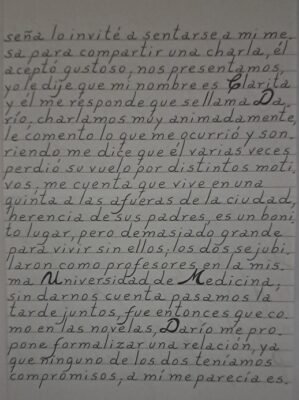 seña lo invité a sentarse a mi me-
sa para compartir una charla, él
aceptó gustoso, nos presentamos,
yo le dije que mi nombre es Clarita
y él me responde que se llama Da-
río, charlamos muy animadamente,
le comento lo que me ocurrió y son-
riendo me dice que él varias veces
perdió su vuelo por distintos moti-
vos, me cuenta que vive en una
quinta a las afueras de la ciudad,
herencia de sus padres, es un boni-
to lugar, pero demasiado grande
para vivir sin ellos, los dos se jubi-
laron como profesores en la mis-
ma Universidad de Medicina,
sin darnos cuenta pasamos la
tarde juntos, fue entonces que co-
mo en las novelas, Darío me pro-
pone formalizar una relación, ya
que ninguno de los dos teníamos
compromisos, a mí me parecía es-